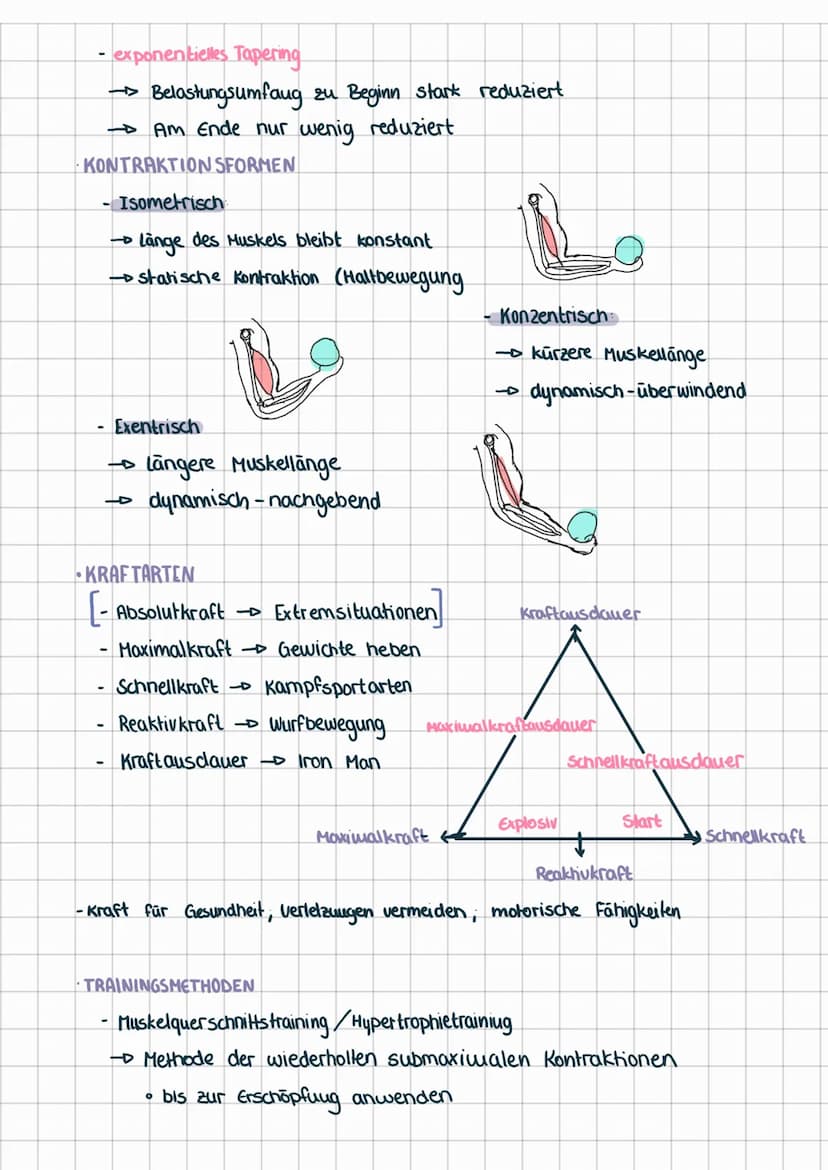 - exponentielles Tapering
→ Belastungsumfang zu Beginn stark reduziert
→ Am Ende nur wenig reduziert
· KONTRAKTIONSFORMEN
- Isometrisch
→ länge des Muskels bleibt konstant
→ statische Kontraktion (Haltbewegung
- Konzentrisch:
→ kürzere Muskellänge
→ dynamisch-überwindend
- Exentrisch
→ längere Muskellänge
→ dynamisch-nachgebend
• KRAFTARTEN
[- Absolutkraft → Extremsituationen]
- Maximalkraft → Gewichte heben
- Schnellkraft → Kampfsportarten
- Reaktivkraft → Wurfbewegung
- Kraftausdauer → Iron Man
Kraftausdauer
Maximalkraftausdauer
Schnellkraftausdauer
Explosiv Start
Maximalkraft Schnellkraft
Reaktivkraft
- Kraft für Gesundheit, Verletzungen vermeiden, motorische Fähigkeiten
· TRAININGSMETHODEN
- Muskelquerschnittstraining/Hypertrophietraining
→ Methode der wiederholten submaximalen Kontraktionen
∘ bis zur Erschöpfung anwenden